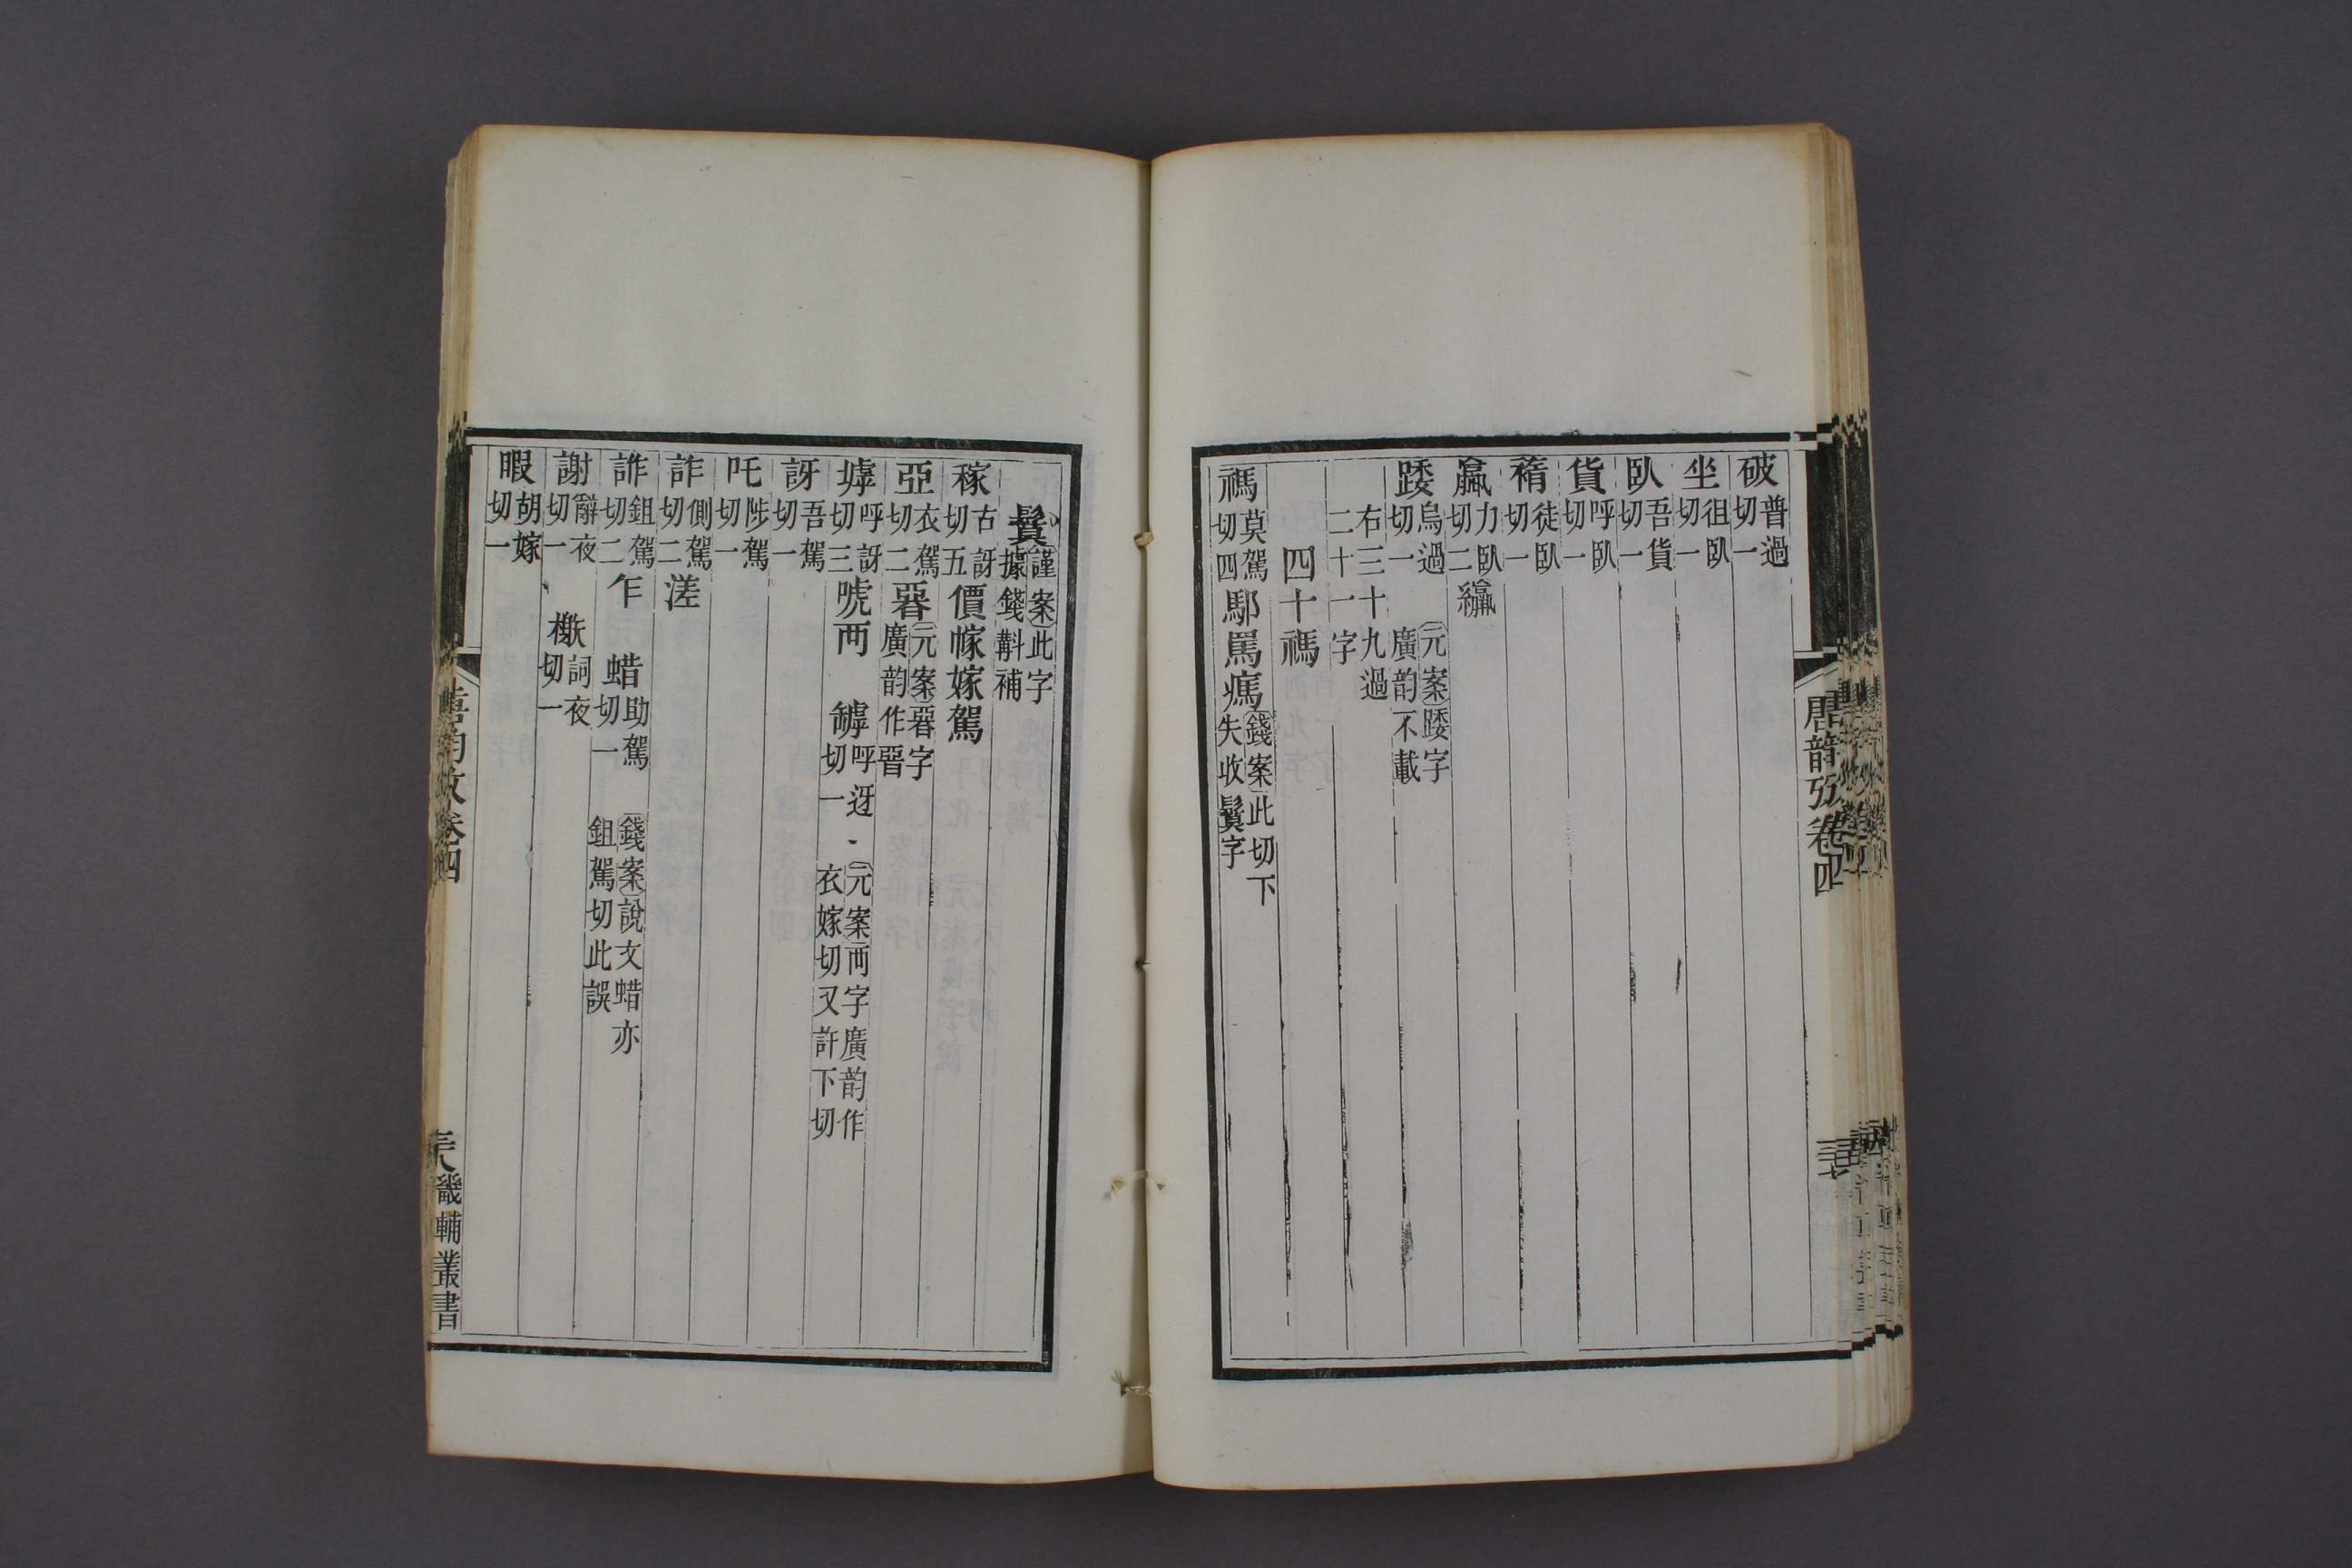 破普過切一
坐徂臥切一
臥吾貨切一
貨呼臥切一
褅徒臥切一
蠃力臥切二纙
踒烏過切一 元案踒字廣韵不載
右三十九過二十一字
四十禡
禡莫駕切四䣕罵㾺錢案此切下失收鬕字
唐韵攷卷四
鬕謹案此字據錢斠補
稼古訝切五價幏嫁駕
亞衣駕切二䛩元案䛩字廣韵作㫧
嫭呼訝切三唬襾 罅呼迓切一 元案襾字廣韵作衣嫁切又許下切
訝吾駕切一
吒陟駕切一
詐側駕切二溠
詐鉏駕切二乍 蜡助駕切一 錢案說文蜡亦鉏駕切此誤
謝辭夜切一 㯐詞夜切一
暇胡嫁切一
唐韵攷卷四
畿輔叢書